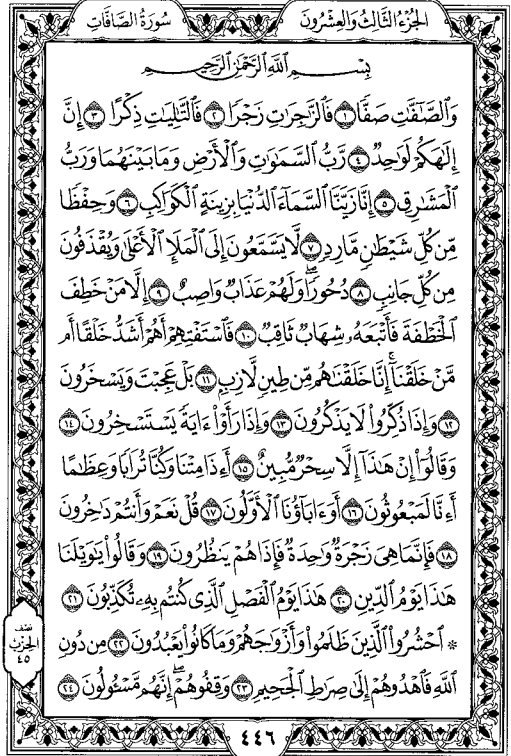 الجُزْءُ الثَّالِثُ وَالعِشْرُونَ سُورَةُ الصَّافَّاتِ
بِسْمِ ٱللَّهِ ٱلرَّحْمَٰنِ ٱلرَّحِيمِ
وَٱلصَّٰٓفَّٰتِ صَفًّا ١ فَٱلزَّٰجِرَٰتِ زَجْرًا ٢ فَٱلتَّٰلِيَٰتِ ذِكْرًا ٣ إِنَّ
إِلَٰهَكُمْ لَوَٰحِدٌ ٤ رَّبُّ ٱلسَّمَٰوَٰتِ وَٱلْأَرْضِ وَمَا بَيْنَهُمَا وَرَبُّ
ٱلْمَشَٰرِقِ ٥ إِنَّا زَيَّنَّا ٱلسَّمَآءَ ٱلدُّنْيَا بِزِينَةٍ ٱلْكَوَاكِبِ ٦ وَحِفْظًا
مِّن كُلِّ شَيْطَٰنٍ مَّارِدٍ ٧ لَّا يَسَّمَّعُونَ إِلَى ٱلْمَلَإِ ٱلْأَعْلَىٰ وَيُقْذَفُونَ
مِن كُلِّ جَانِبٍ ٨ دُحُورًا ۖ وَلَهُمْ عَذَابٌ وَاصِبٌ ٩ إِلَّا مَنْ خَطِفَ
ٱلْخَطْفَةَ فَأَتْبَعَهُۥ شِهَابٌ ثَاقِبٌ ١٠ فَٱسْتَفْتِهِمْ أَهُمْ أَشَدُّ خَلْقًا أَم
مَّنْ خَلَقْنَآ ۚ إِنَّا خَلَقْنَٰهُم مِّن طِينٍ لَّازِبٍ ١١ بَلْ عَجِبْتَ وَيَسْخَرُونَ
١٢ وَإِذَا ذُكِّرُوا۟ لَا يَذْكُرُونَ ١٣ وَإِذَا رَأَوْا۟ ءَايَةً يَسْتَسْخِرُونَ ١٤
وَقَالُوٓا۟ إِنْ هَٰذَآ إِلَّا سِحْرٌ مُّبِينٌ ١٥ أَءِذَا مِتْنَا وَكُنَّا تُرَابًا وَعِظَٰمًا
أَءِنَّا لَمَبْعُوثُونَ ١٦ أَوَءَابَآؤُنَا ٱلْأَوَّلُونَ ١٧ قُلْ نَعَمْ وَأَنتُمْ دَٰخِرُونَ
١٨ فَإِنَّمَا هِىَ زَجْرَةٌ وَٰحِدَةٌ فَإِذَا هُمْ يَنظُرُونَ ١٩ وَقَالُوا۟ يَٰوَيْلَنَا
هَٰذَا يَوْمُ ٱلدِّينِ ٢٠ هَٰذَا يَوْمُ ٱلْفَصْلِ ٱلَّذِى كُنتُم بِهِۦ تُكَذِّبُونَ ٢١
۞ ٱحْشُرُوا۟ ٱلَّذِينَ ظَلَمُوا۟ وَأَزْوَٰجَهُمْ وَمَا كَانُوا۟ يَعْبُدُونَ ٢٢ مِن دُونِ
ٱللَّهِ فَٱهْدُوهُمْ إِلَىٰ صِرَٰطِ ٱلْجَحِيمِ ٢٣ وَقِفُوهُمْ ۖ إِنَّهُم مَّسْـُٔولُونَ ٢٤
نصف
الحزب
٤٥
٤٤٦